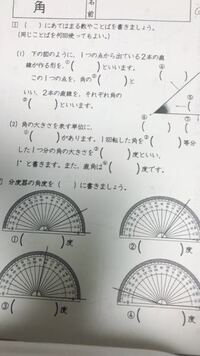 角
名
前
1 ( )にあてはまる数やことばを書きましょう。
(同じことばを何回使ってもよい。)
(1) 下の図のように、1つの点から出ている2本の直
線が作る形を、①( )といいます。
この1つの点を、角の②( )と
いい、2本の直線を、それぞれ角の
③( )といいます。
(2) 角の大きさを表す単位に、
①( )があります。1回転した角を②( )等分
した1つ分の角の大きさを③( )度といい、
1°と書きます。また、直角は④( )度です。
分度器の角度を( )に書きましょう。
①( )度
②( )度
③( )度
④( )度